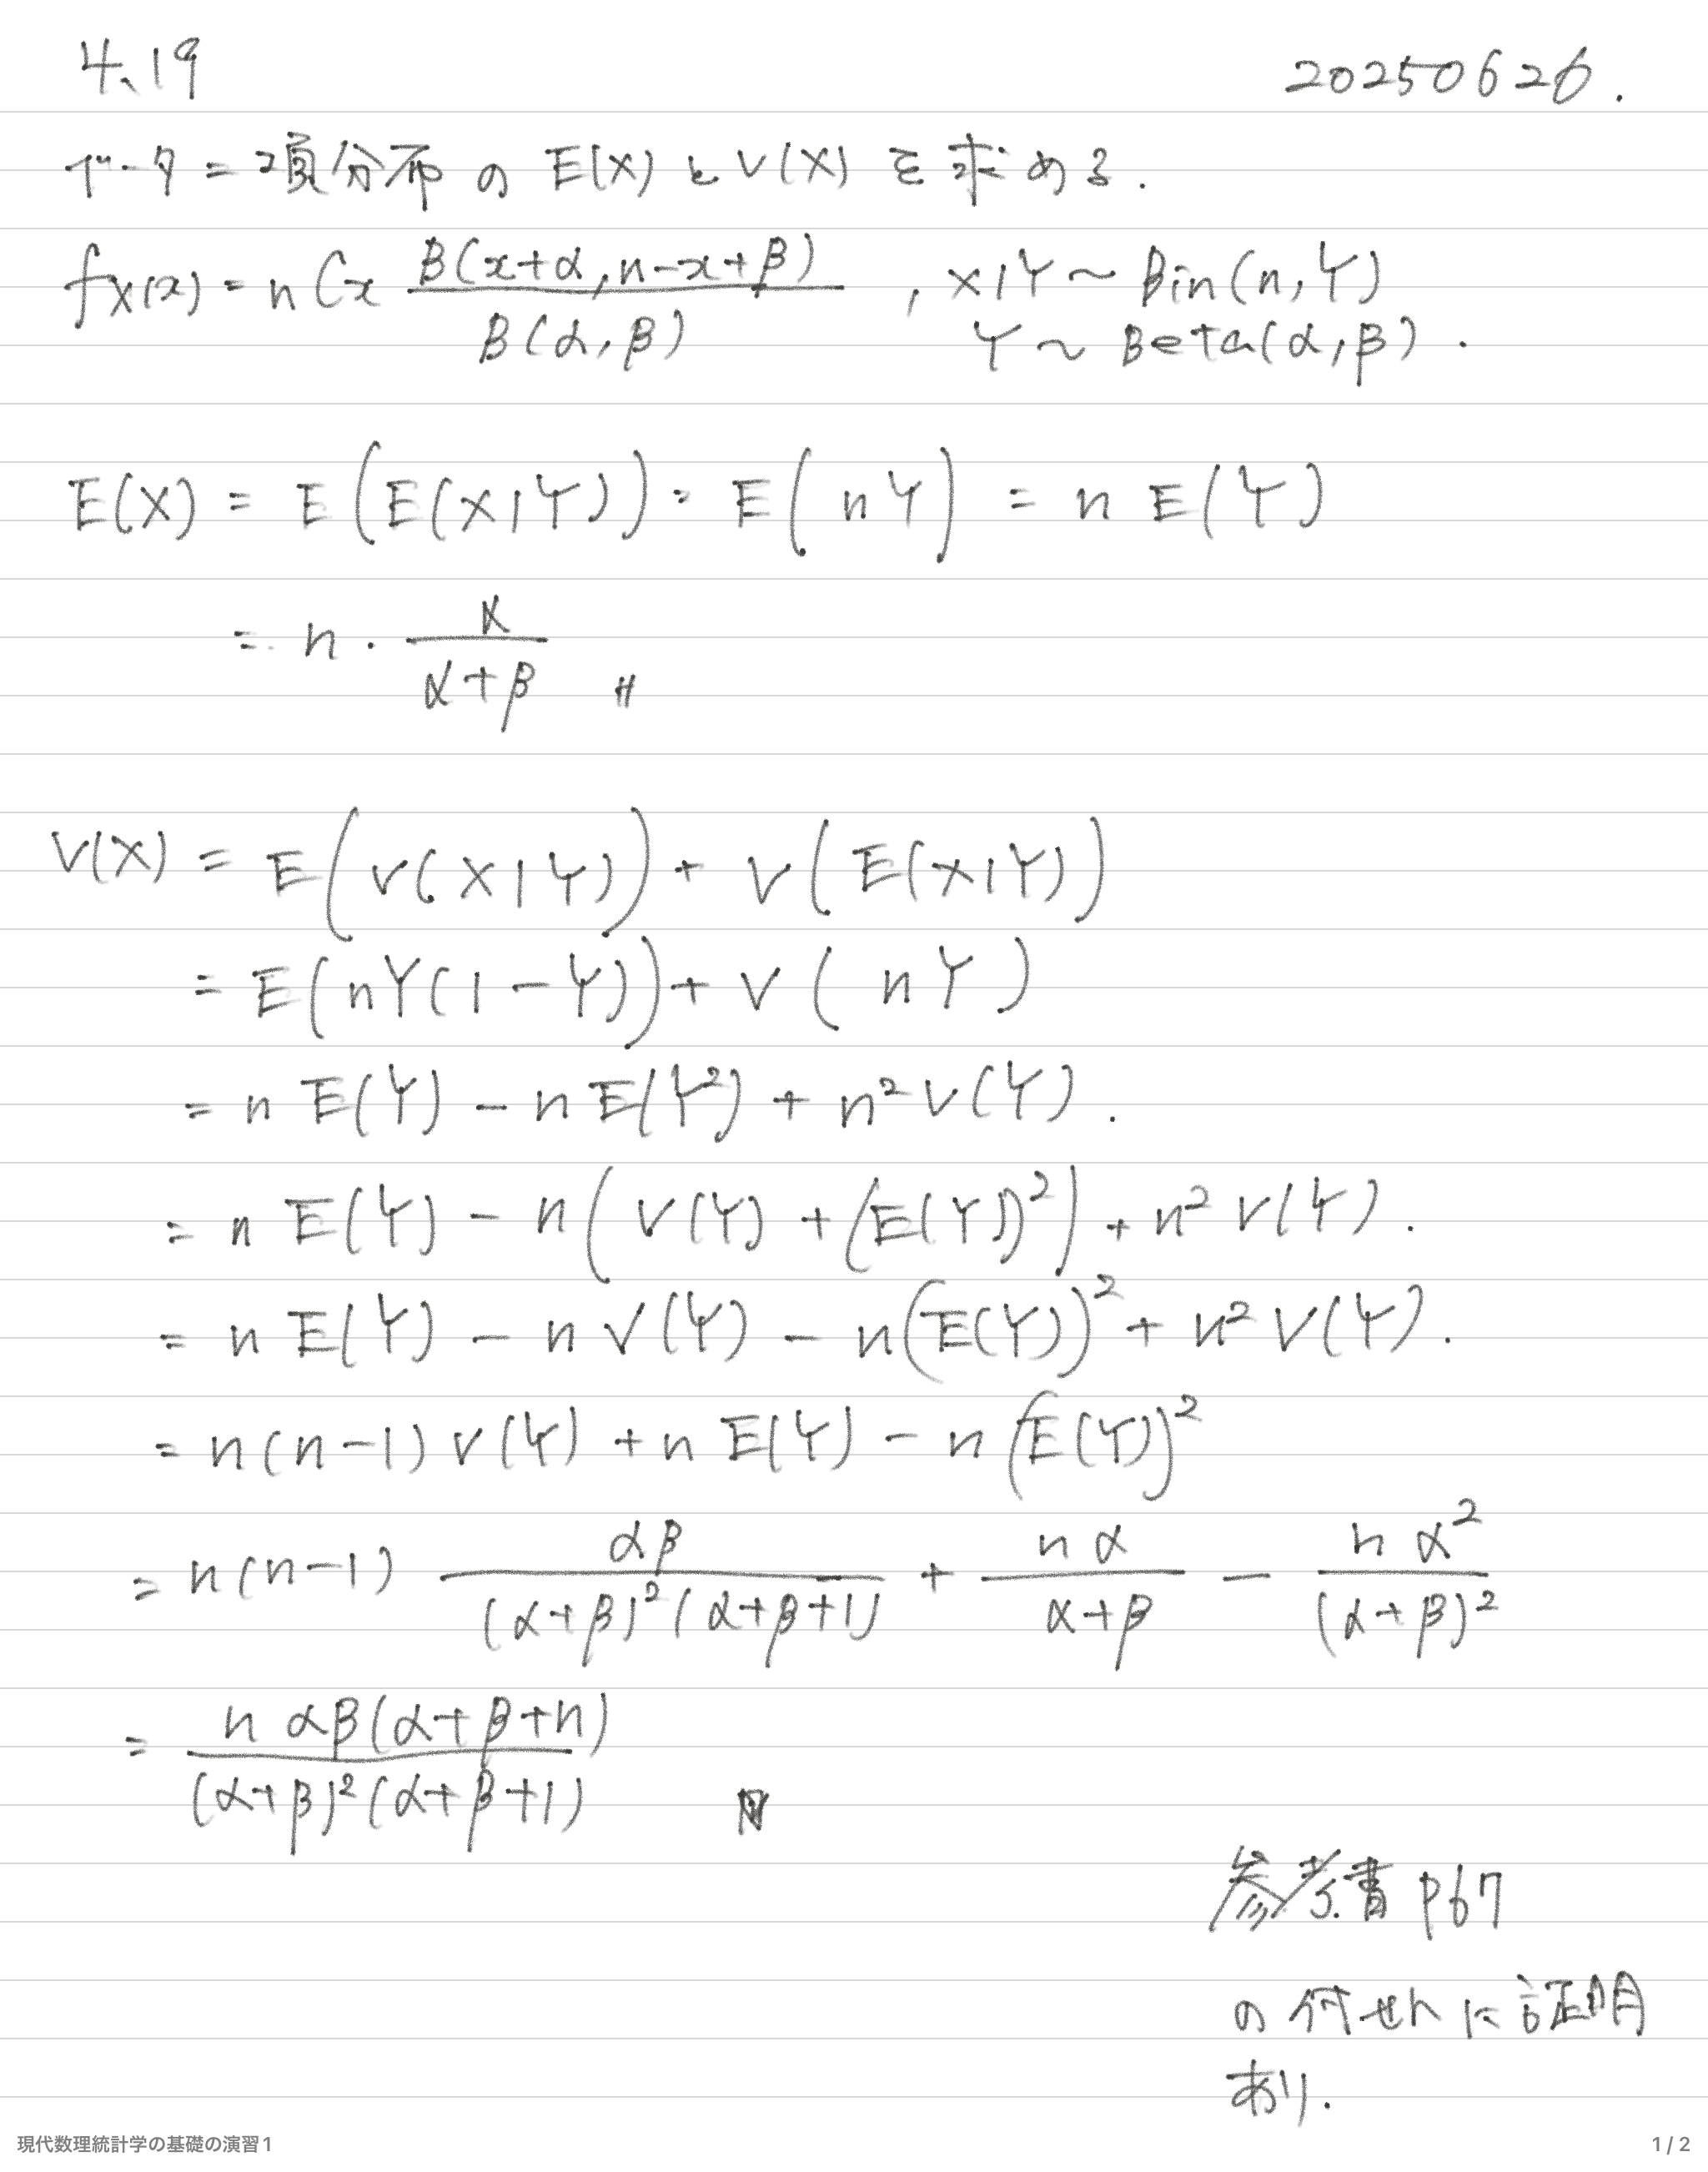 4.19
20250626.
ベータ二項分布の E(X) と V(X) を求める.
fX(x) = nCx B(x+α, n-x+β) / B(α, β) , X|Y ~ Bin(n, Y)
Y ~ Beta(α, β).
E(X) = E(E(X|Y)) = E(nY) = n E(Y)
= n · α / (α+β) 〃
V(X) = E(V(X|Y)) + V(E(X|Y))
= E(nY(1-Y)) + V(nY)
= n E(Y) - n E(Y²) + n² V(Y).
= n E(Y) - n(V(Y) + (E(Y))²) + n² V(Y).
= n E(Y) - n V(Y) - n(E(Y))² + n² V(Y).
= n(n-1) V(Y) + n E(Y) - n(E(Y))²
= n(n-1) αβ / (α+β)²(α+β+1) + nα / (α+β) - nα² / (α+β)²
= nαβ(α+β+n) / (α+β)²(α+β+1)
参考書 p67
の付せんに証明
あり.
現代数理統計学の基礎の演習1
1 / 2